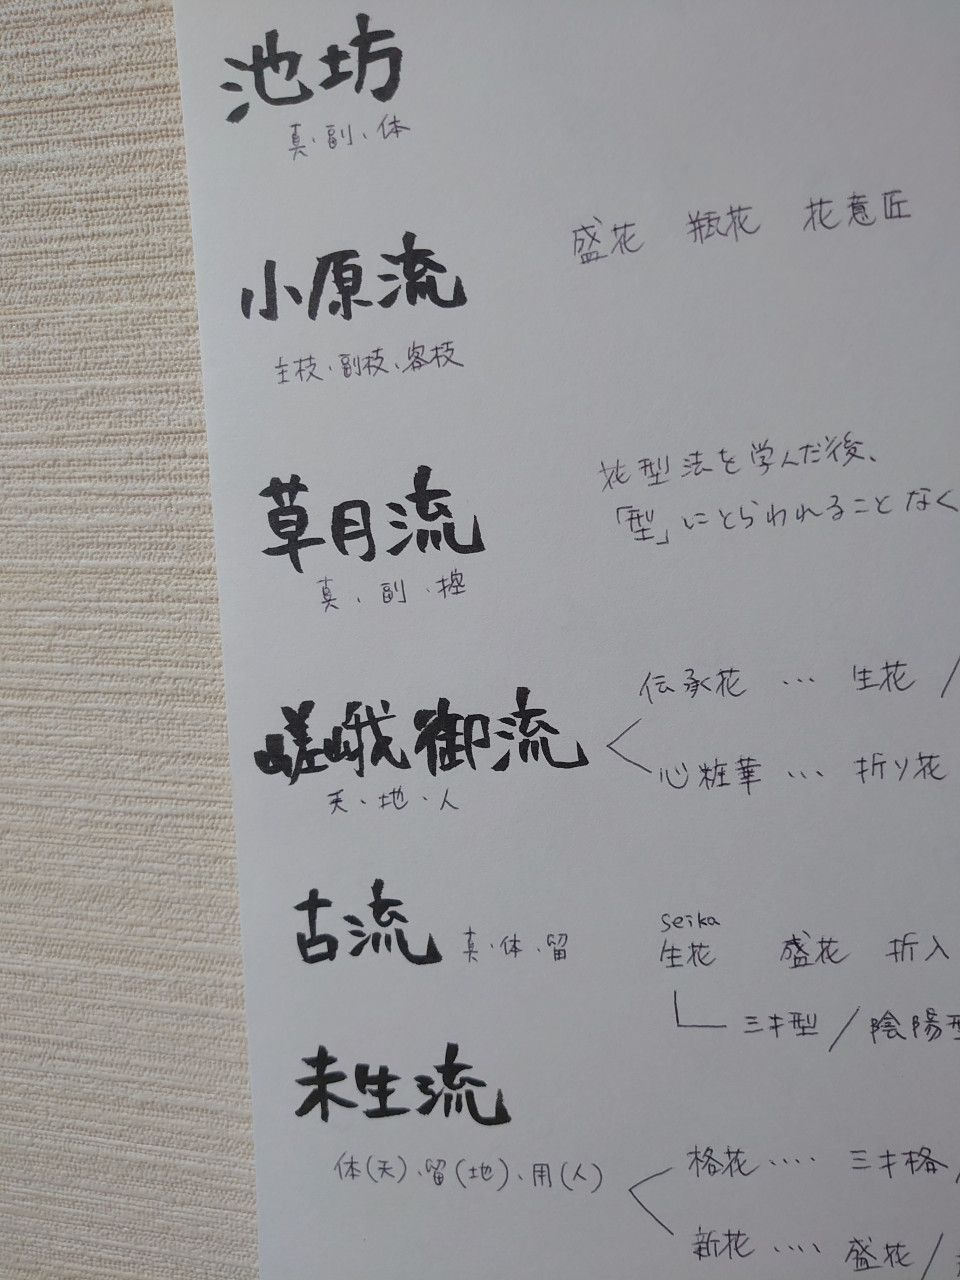 池坊
真・副・体
小原流
盛花 瓶花 花意匠
主枝・副枝・客枝
草月流
真・副・控
花型法を学んだ後、
「型」にとらわれることなく
嵯峨御流
天・地・人
伝承花 … 生花 /
心粧華 … 折り花
古流 真・体・留
seika
生花 盛花 折入
三才型 / 陰陽型
未生流
体(天)、留(地)、用(人)
格花 ‥‥ 三才格 /
新花 ‥‥ 盛花 /